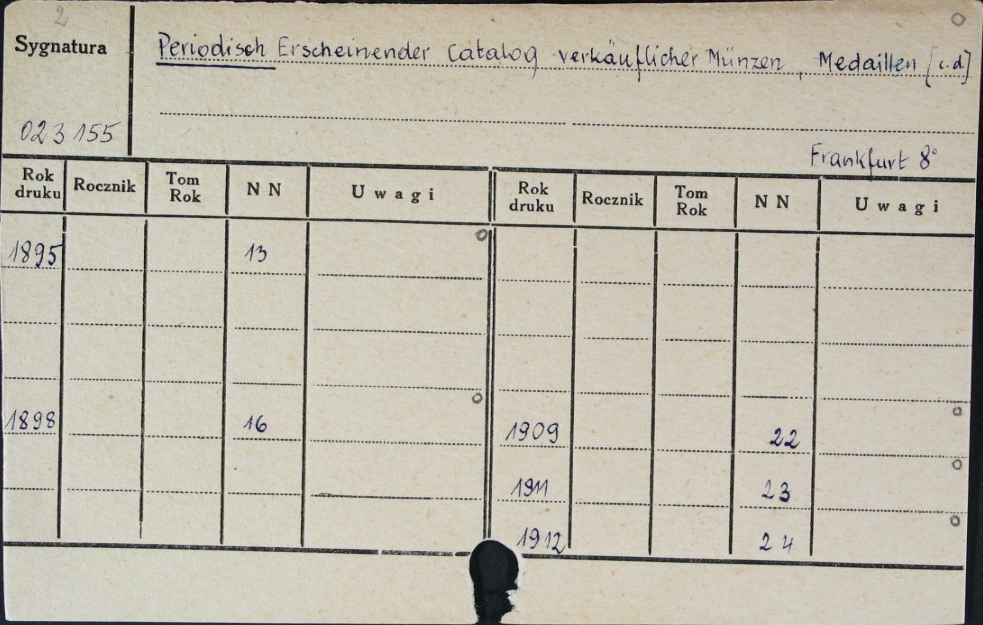 2
Sygnatura
Periodisch Erscheinender Catalog verkäuflicher Münzen, Medaillen [c.d]
023155
Frankfurt 8°
Rok druku Rocznik Tom Rok NN Uwagi Rok druku Rocznik Tom Rok NN Uwagi
1895 13
1898 16 1909 22
1911 23
1912 24